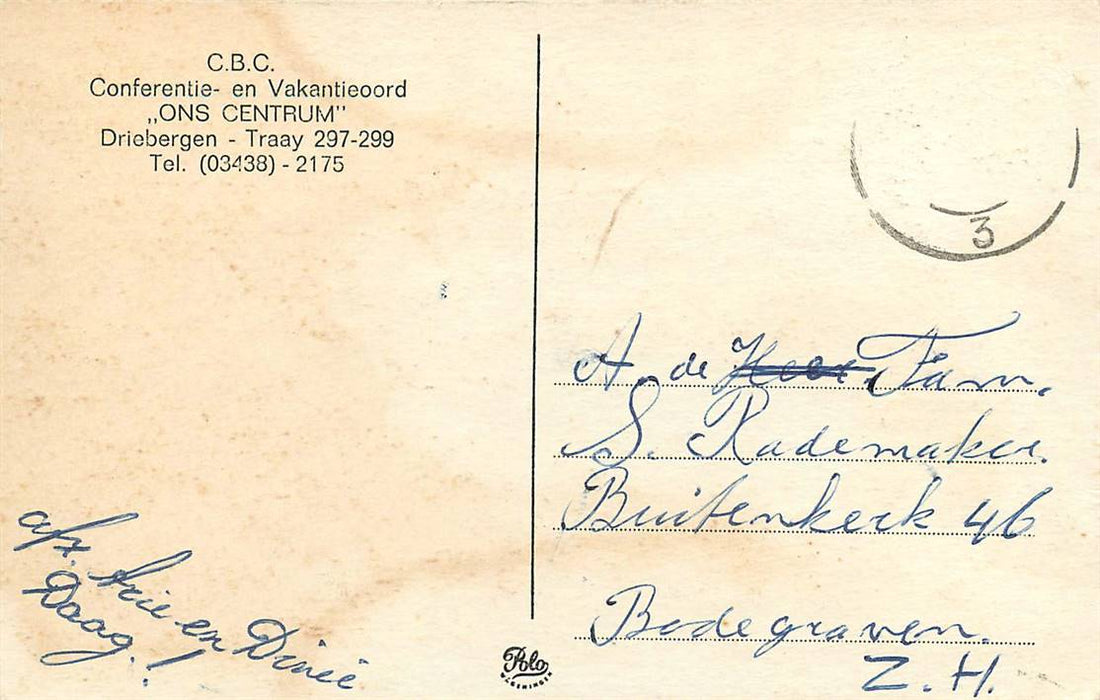 C.B.C.
Conferentie- en Vakantieoord
„ONS CENTRUM"
Driebergen - Traay 297-299
Tel. (03438) - 2175
3
A. de Heer. Fam.
S. Rademaker.
Buitenkerk 46
Bodegraven.
Z.H
afz. Arie en Dinie
Daag.!
Polo